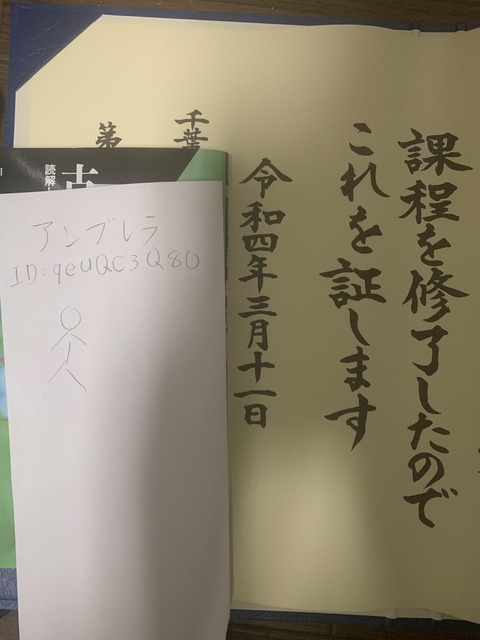 課程を修了したので
これを証します
令和四年三月十一日
千葉
第
読解
古
アンブレラ
ID:qeUQC3Q80